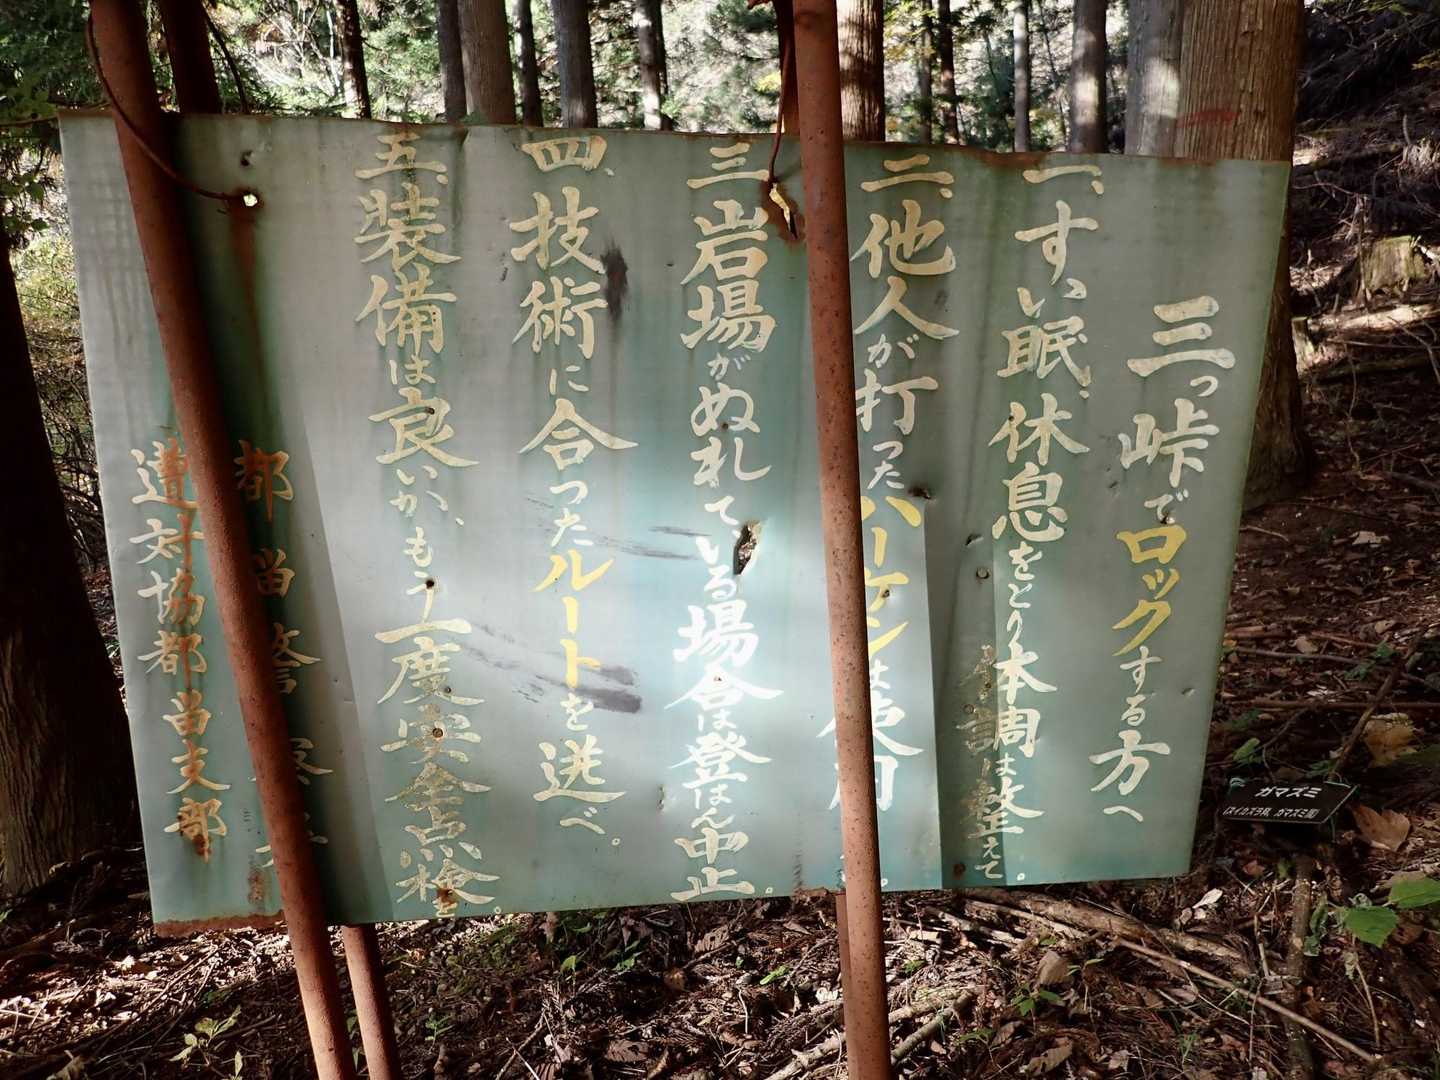 三つ峠でロックする方へ
一、すい眠、休息をとり本調は整えて
体調は
二、他人が打ったハーケンは使用
三、岩場がぬれている場合は登はん中止。
四、技術に合ったルートを送べ。
五、装備は良いか、もう一度安全点検を。
都留警察
遭対協都留支部
ガマズミ
(スイカズラ科、ガマズミ属)